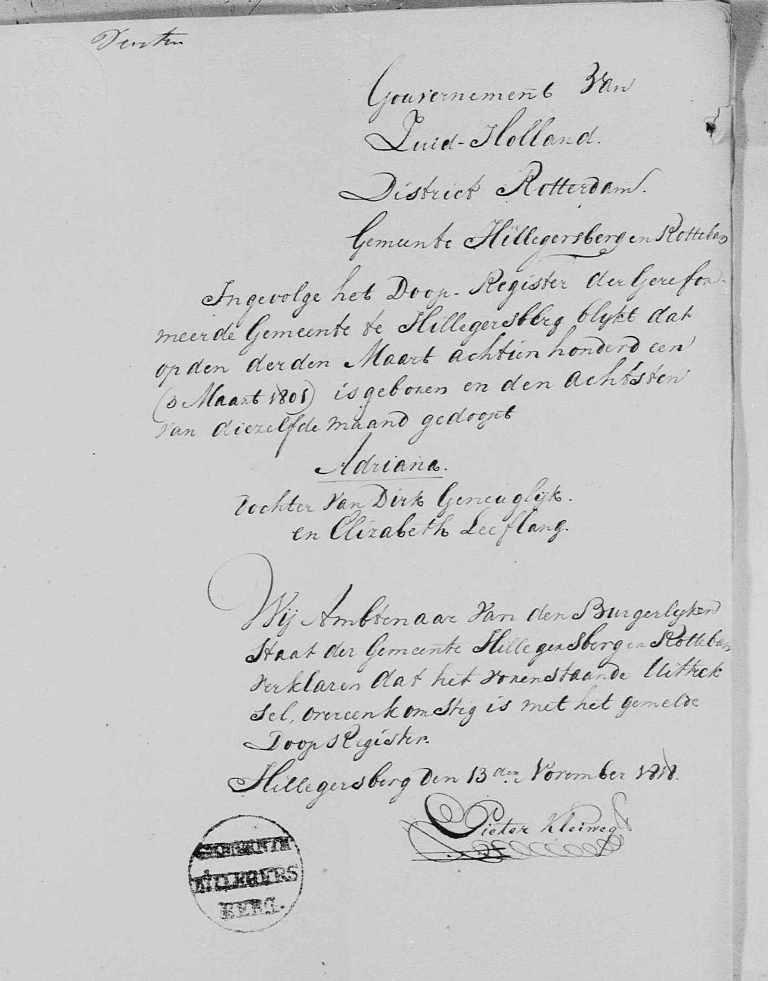 Gouvernement Van
Zuid-Holland.
District Rotterdam.
Gemeente Hillegersberg en Rotteban
Ingevolge het Doop-Register der Gerefor-
meerde Gemeente te Hillegersberg blijkt dat
op den derden Maart achtien honderd een
(3 Maart 1801) is geboren en den achtsten
van diezelfde maand gedoopt
Adriana.
Dochter Van Dirk Geneuglijk.
en Elizabeth Leeflang.
Wij Ambtenaar Van den Burgerlijken
Staat der Gemeente Hillegersberg en Rotteban
Verklaren dat het vorenstaande Uittrek
sel, overeenkomstig is met het gemelde
Doop Register.
Hillegersberg den 13den November 1818.
Pieter Kleiweg
HILLEGERS
BERG.